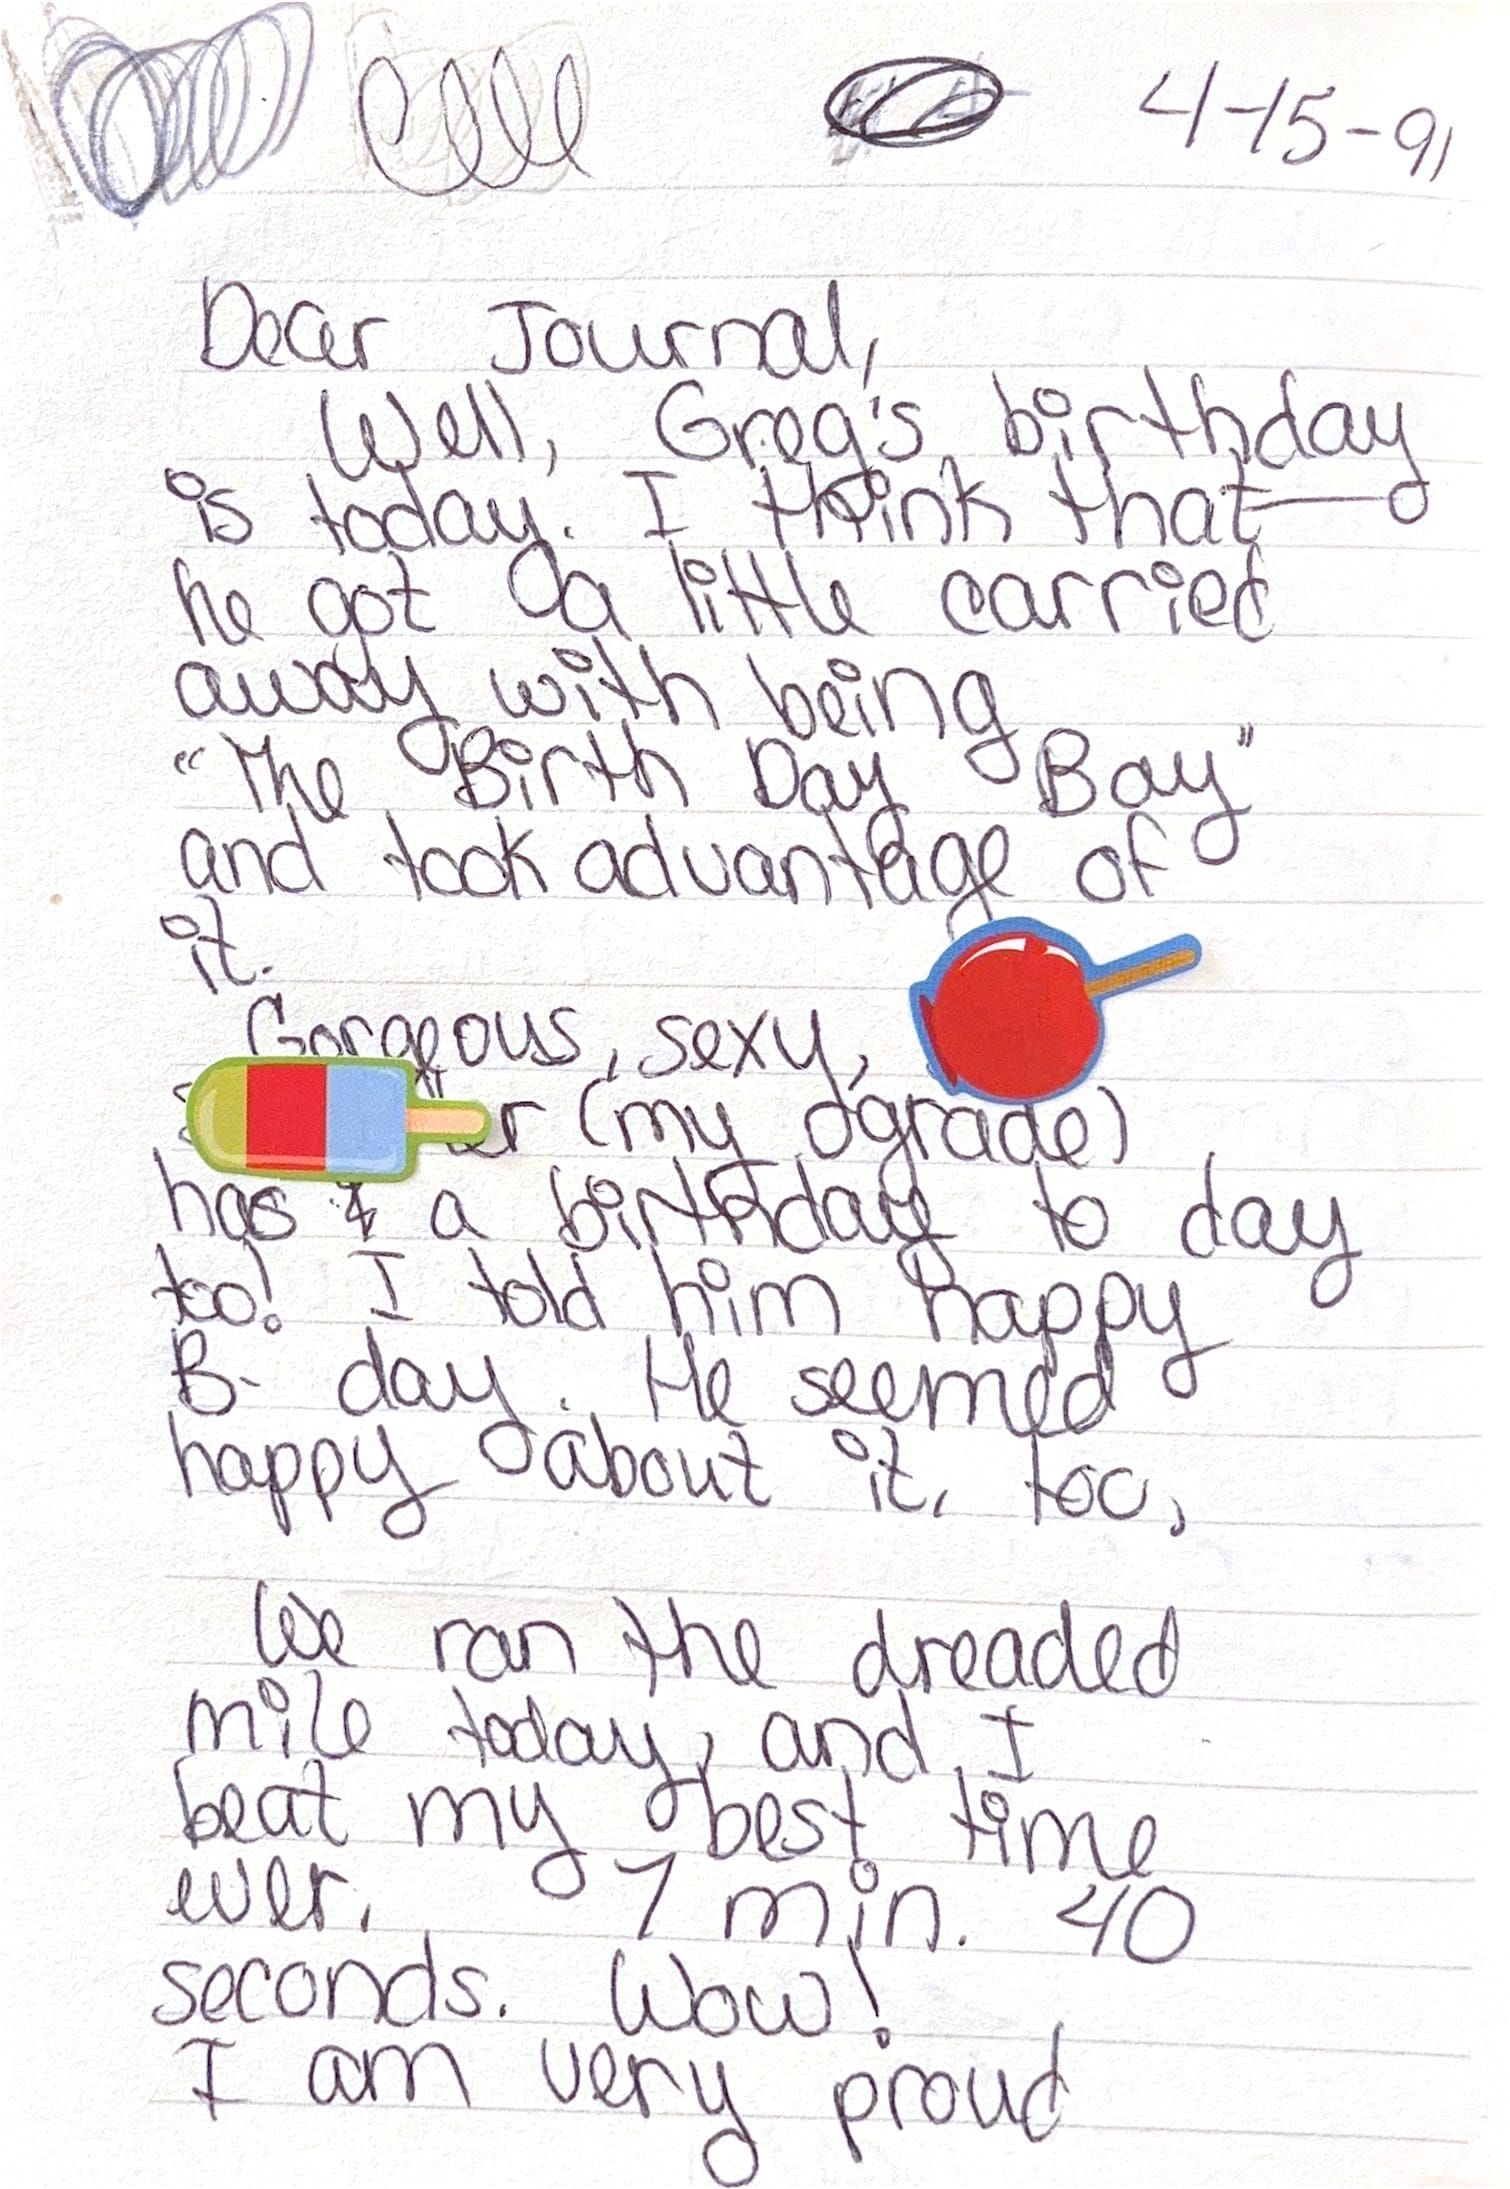 4-15-91
Dear Journal,
Well, Greg's birthday
is today. I think that
he got a little carried
away with being
"The Birth Day Boy"
and took advantage of
it.
Gorgeous, sexy,
(my grade)
has a birthday to day
too! I told him happy
B-day. He seemed
happy about it, too,
We ran the dreaded
mile today, and I
beat my best time
ever. 7 min. 40
seconds. Wow!
I am very proud